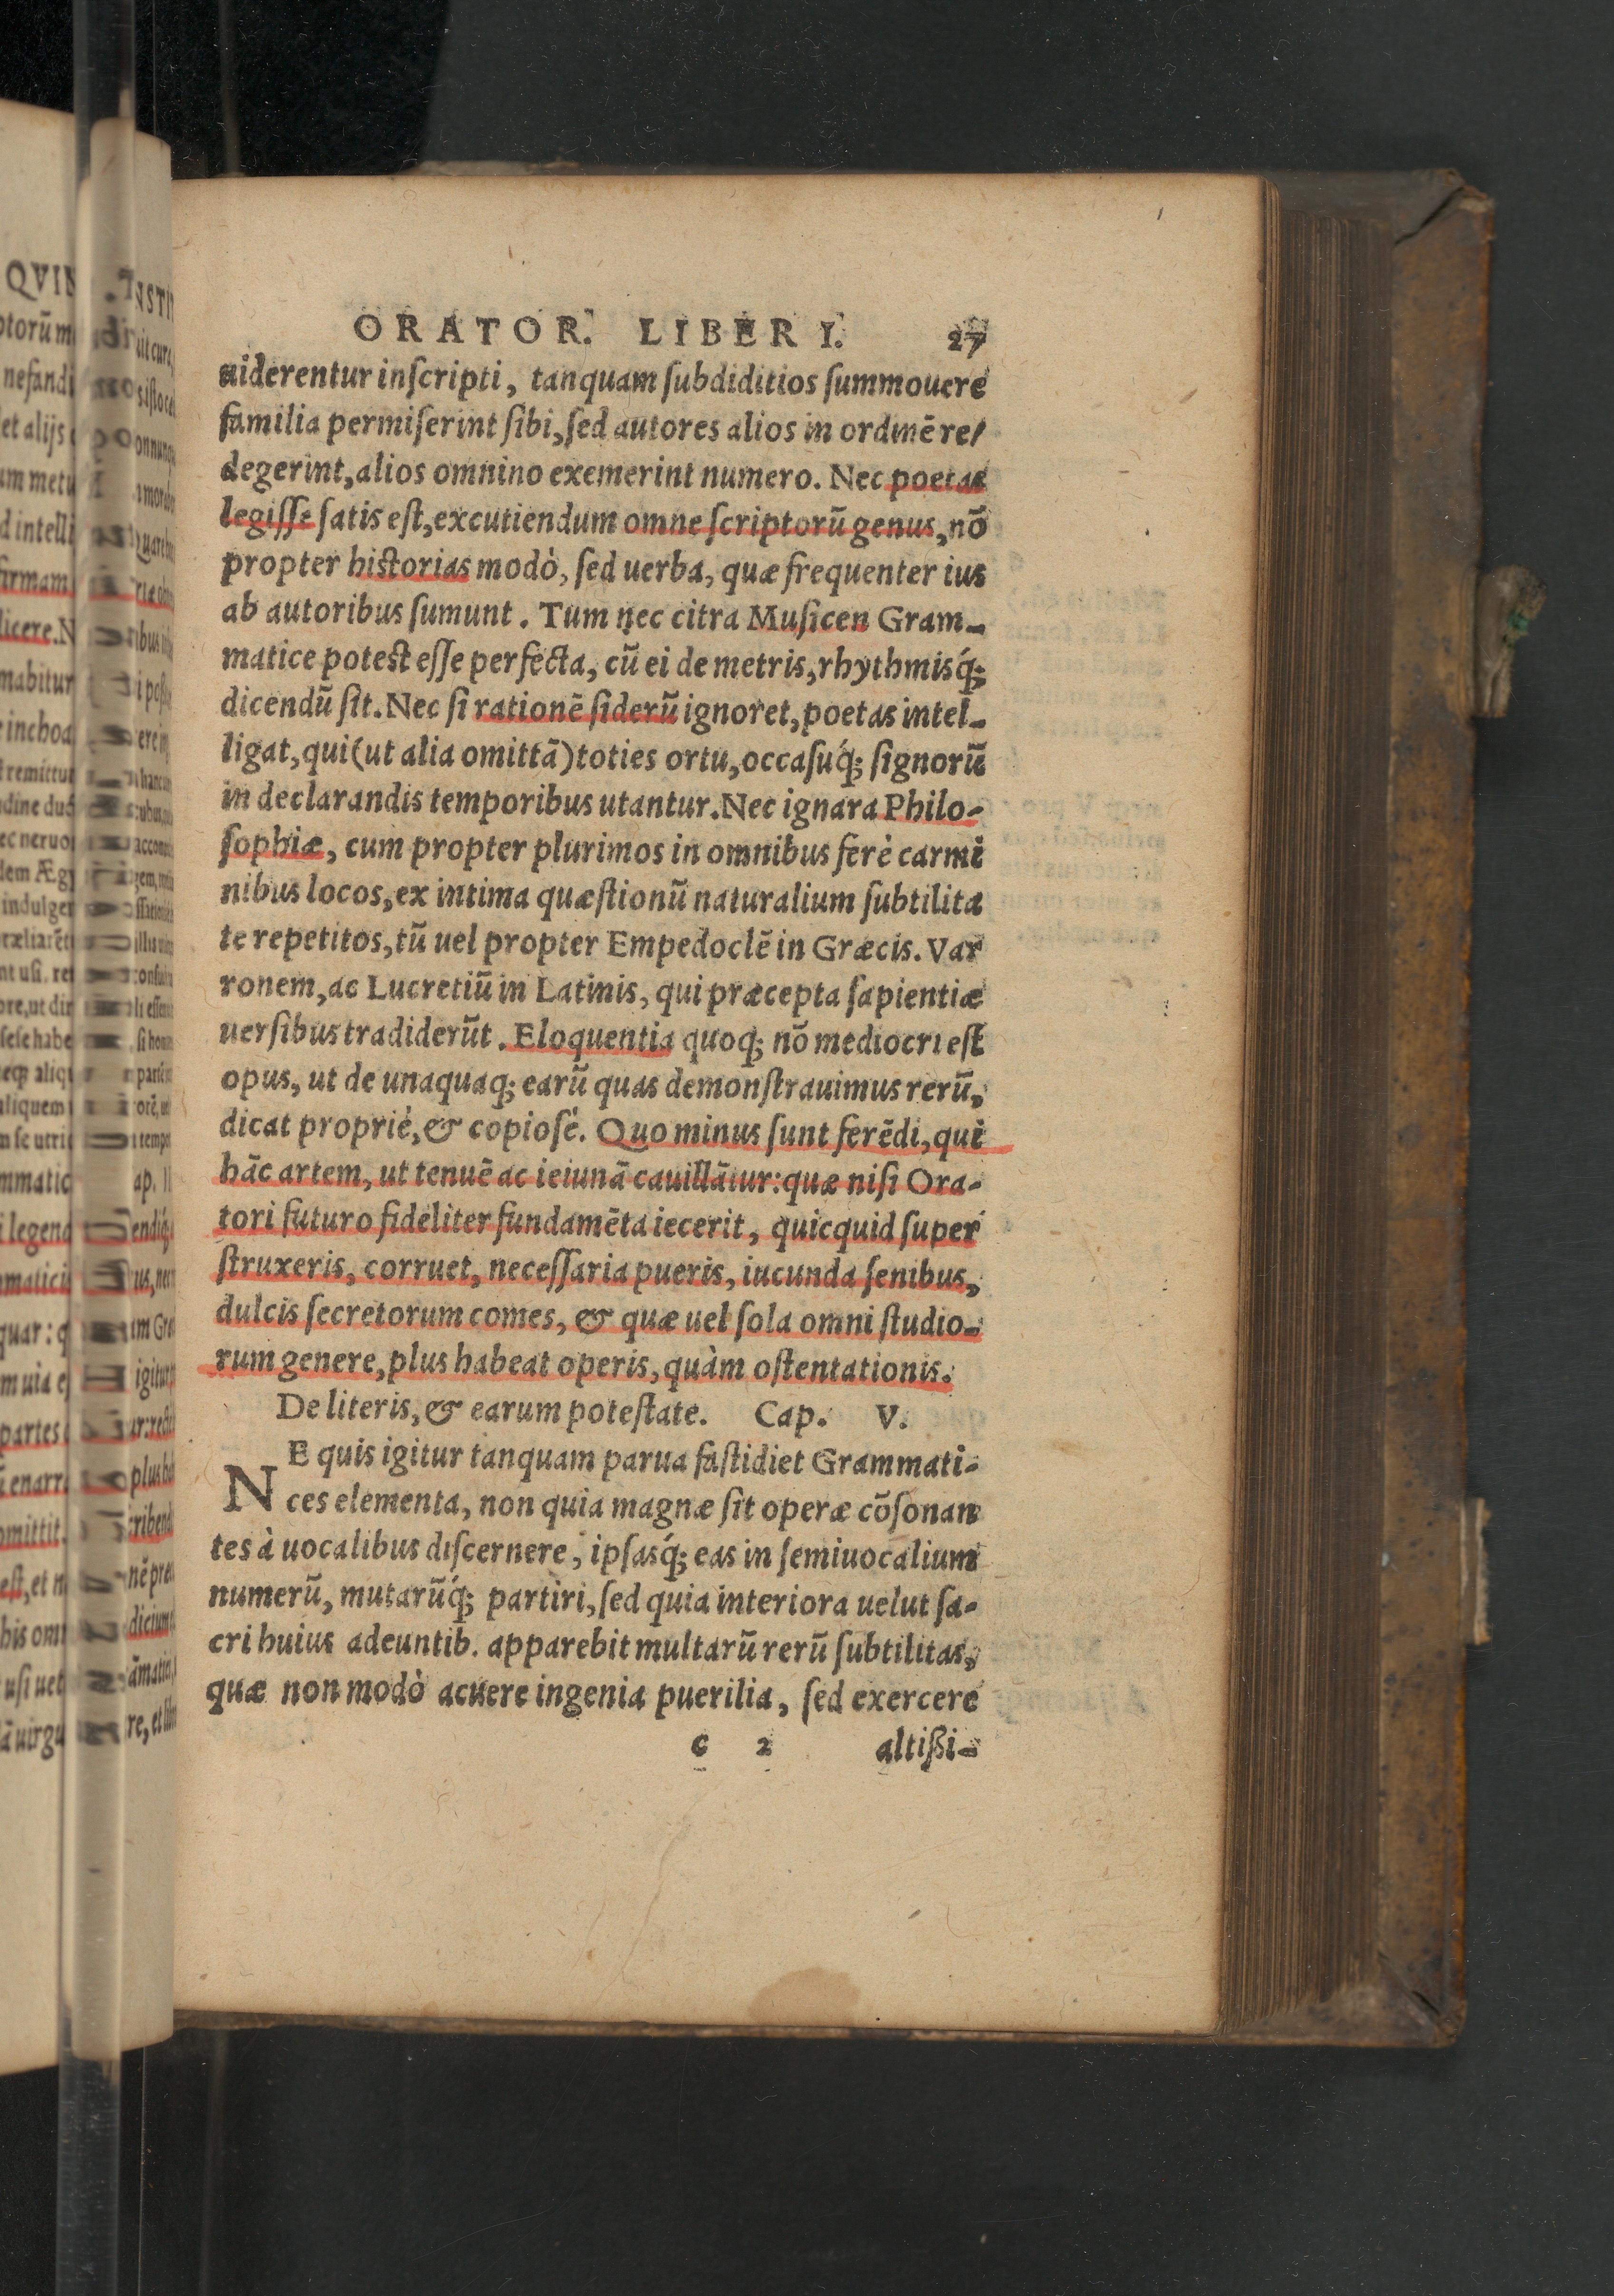 ORATOR. LIBER I. 27
uiderentur inſcripti, tanquam ſubdititios ſummouere
familia permiſerint ſibi, ſed autores alios in ordinē re/
degerint, alios omnino exemerint numero. Nec poetas
legiſſe ſatis eſt, excutiendum omne ſcriptorū genus, nō
propter historias modò, ſed uerba, quæ frequenter ius
ab autoribus ſumunt. Tum nec citra Muſicen Gram-
matice poteſt eſſe perfecta, cū ei de metris, rhythmisq́;
dicendū ſit. Nec ſi rationē ſiderū ignoret, poetas intel-
ligat, qui (ut alia omittā) toties ortu, occaſuq́; ſignorū
in declarandis temporibus utantur. Nec ignara Philo-
ſophiæ, cum propter plurimos in omnibus ferè carmi
nibus locos, ex intima quæſtionū naturalium ſubtilita
te repetitos, tū uel propter Empedoclē in Græcis. Var
ronem, ac Lucretiū in Latinis, qui præcepta ſapientiæ
uerſibus tradiderūt. Eloquentia quoq; nō mediocri eſt
opus, ut de unaquaq; earū quas demonſtrauimus rerū,
dicat proprié, & copioſé. Quo minus ſunt ferēdi, qui
hāc artem, ut tenuē ac ieiunā cauillātur: quæ niſi Ora-
tori futuro fideliter fundamēta iecerit, quicquid ſuper
ſtruxeris, corruet, neceſſaria pueris, iucunda ſenibus,
dulcis ſecretorum comes, & quæ uel ſola omni ſtudio-
rum genere, plus habeat operis, quàm oſtentationis.
De literis, & earum poteſtate. Cap. V.
NE quis igitur tanquam parua faſtidiet Grammati-
ces elementa, non quia magnæ ſit operæ cōſonan
tes à uocalibus diſcernere, ipſasq́; eas in ſemiuocalium
numerū, mutarūq́; partiri, ſed quia interiora uelut ſa-
cri huius adeuntib. apparebit multarū rerū ſubtilitas,
quæ non modò acuere ingenia puerilia, ſed exercere
c 2 altißi-